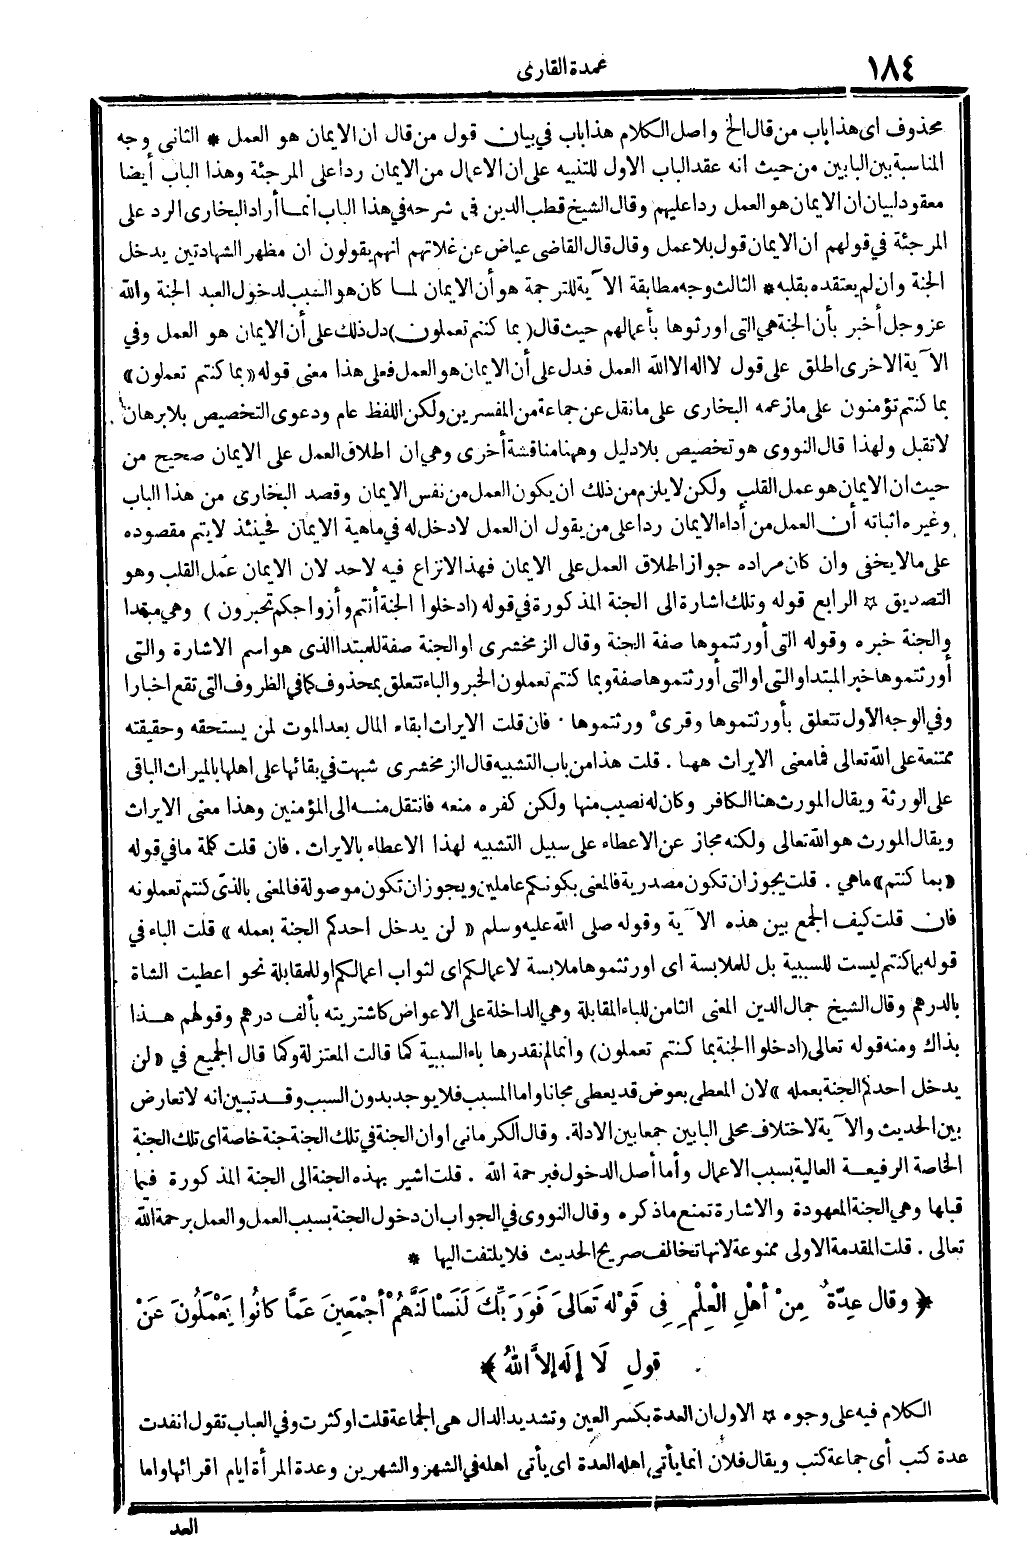 ١٨٤
عمدة القارى
محذوف اى هذا باب من قال الخ واصل الكلام هذا باب في بيان قول من قال ان الايمان هو العمل * الثانى وجه
المناسبة بين البابين من حيث انه عقد الباب الاول للتنبيه على ان الاعمال من الايمان ردا على المرجئة وهذا الباب أيضا
معقود لبيان ان الايمان هو العمل ردا عليهم وقال الشيخ قطب الدين في شرحه في هذا الباب انما أراد البخارى الرد على
المرجئة في قولهم ان الايمان قول بلا عمل وقال قال القاضى عياض عن غلاتهم انهم يقولون ان مظهر الشهادتين يدخل
الجنة وان لم يعتقده بقلبه * الثالث وجه مطابقة الآية للترجمة هو أن الايمان لما كان هو السبب لدخول العبد الجنة والله
عز وجل أخبر بأن الجنة هي التى اورثوها بأعمالهم حيث قال ( بما كنتم تعملون ) دل ذلك على أن الايمان هو العمل وفي
الآية الاخرى اطلق على قول لااله الا الله العمل فدل على أن الايمان هو العمل فعلى هذا معنى قوله «بما كنتم تعملون»
بما كنتم تؤمنون على ما زعمه البخارى على ما نقل عن جماعة من المفسرين ولكن اللفظ عام ودعوى التخصيص بلا برهان
لا تقبل ولهذا قال النووى هو تخصيص بلا دليل وههنا مناقشة أخرى وهي ان اطلاق العمل على الايمان صحيح من
حيث ان الايمان هو عمل القلب ولكن لا يلزم من ذلك ان يكون العمل من نفس الايمان وقصد البخارى من هذا الباب
وغيره اثباته أن العمل من أداء الايمان ردا على من يقول ان العمل لا دخل له في ماهية الايمان فحينئذ لا يتم مقصوده
على ما لا يخفى وان كان مراده جواز اطلاق العمل على الايمان فهذا لا نزاع فيه لاحد لان الايمان عمل القلب وهو
التصديق * الرابع قوله وتلك اشارة الى الجنة المذكورة في قوله (ادخلوا الجنة أنتم وأزواجكم تحبرون ) وهي مبتدا
والجنة خبره وقوله التى أورثتموها صفة الجنة وقال الزمخشرى او الجنة صفة للمبتدا الذى هو اسم الاشارة والتى
أورثتموها خبر المبتدا والتى او التى أورثتموها صفة وبما كنتم تعملون الخبر والباء تتعلق بمحذوف كما في الظروف التى تقع اخبارا
وفي الوجه الاول تتعلق بأورثتموها وقرىء ورثتموها . فان قلت الايراث ابقاء المال بعد الموت لمن يستحقه وحقيقته
ممتنعة على الله تعالى فما معنى الايراث ههنا . قلت هذا من باب التشبيه قال الزمخشرى شبهت في بقائها على اهلها بالميراث الباقى
على الورثة ويقال المورث هنا الكافر وكان له نصيب منها ولكن كفره منعه فانتقل منه الى المؤمنين وهذا معنى الايراث
ويقال المورث هو الله تعالى ولكنه مجاز عن الاعطاء على سبيل التشبيه لهذا الاعطاء بالايراث . فان قلت كلمة ما في قوله
«بما كنتم» ماهي . قلت يجوز ان تكون مصدرية فالمعنى بكونكم عاملين ويجوز ان تكون موصولة فالمعنى بالذى كنتم تعملونه
فان قلت كيف الجمع بين هذه الآية وقوله صلى الله عليه وسلم « لن يدخل احدكم الجنة بعمله » قلت الباء في
قوله بما كنتم ليست للسببية بل للملابسة اى اورثتموها ملابسة لاعمالكم اى لثواب اعمالكم او للمقابلة نحو اعطيت الشاة
بالدرهم وقال الشيخ جمال الدين المعنى الثامن للباء المقابلة وهي الداخلة على الاعواض كاشتريته بألف درهم وقولهم هذا
بذاك ومنه قوله تعالى (ادخلوا الجنة بما كنتم تعملون) وانما لم نقدرها باء السببية كما قالت المعتزلة وكما قال الجميع في «لن
يدخل احدكم الجنة بعمله» لان المعطى بعوض قد يعطى مجانا واما المسبب فلا يوجد بدون السبب وقد تبين انه لا تعارض
بين الحديث والآية لاختلاف محلى البابين جمعا بين الادلة. وقال الكرمانى او ان الجنة في تلك الجنة جنة خاصة اى تلك الجنة
الخاصة الرفيعة العالية بسبب الاعمال وأما أصل الدخول فبرحمة الله . قلت اشير بهذه الجنة الى الجنة المذكورة فيما
قبلها وهي الجنة المعهودة والاشارة تمنع ما ذكره وقال النووى في الجواب ان دخول الجنة بسبب العمل والعمل برحمة الله
تعالى . قلت المقدمة الاولى ممنوعة لانها تخالف صريح الحديث فلا يلتفت اليها *
﴿ وقال عِدَّةٌ مِنْ أهْلِ الْعِلْمِ فِى قَوْلِهِ تَعَالَى فَوَرَبِّكَ لَنَسْأَلَنَّهُمْ أجْمَعِينَ عَمَّا كانُوا يَعْمَلُونَ عَنْ
قولِ لَا إِلَهَ إِلاَّ اللهُ ﴾
الكلام فيه على وجوه * الاول ان العدة بكسر العين وتشديد الدال هى الجماعة قلت او كثرت وفي العباب تقول انفدت
عدة كتب أى جماعة كتب ويقال فلان انما يأتى اهله العدة اى يأتى اهله في الشهر والشهرين وعدة المرأة ايام اقرائها واما
العد